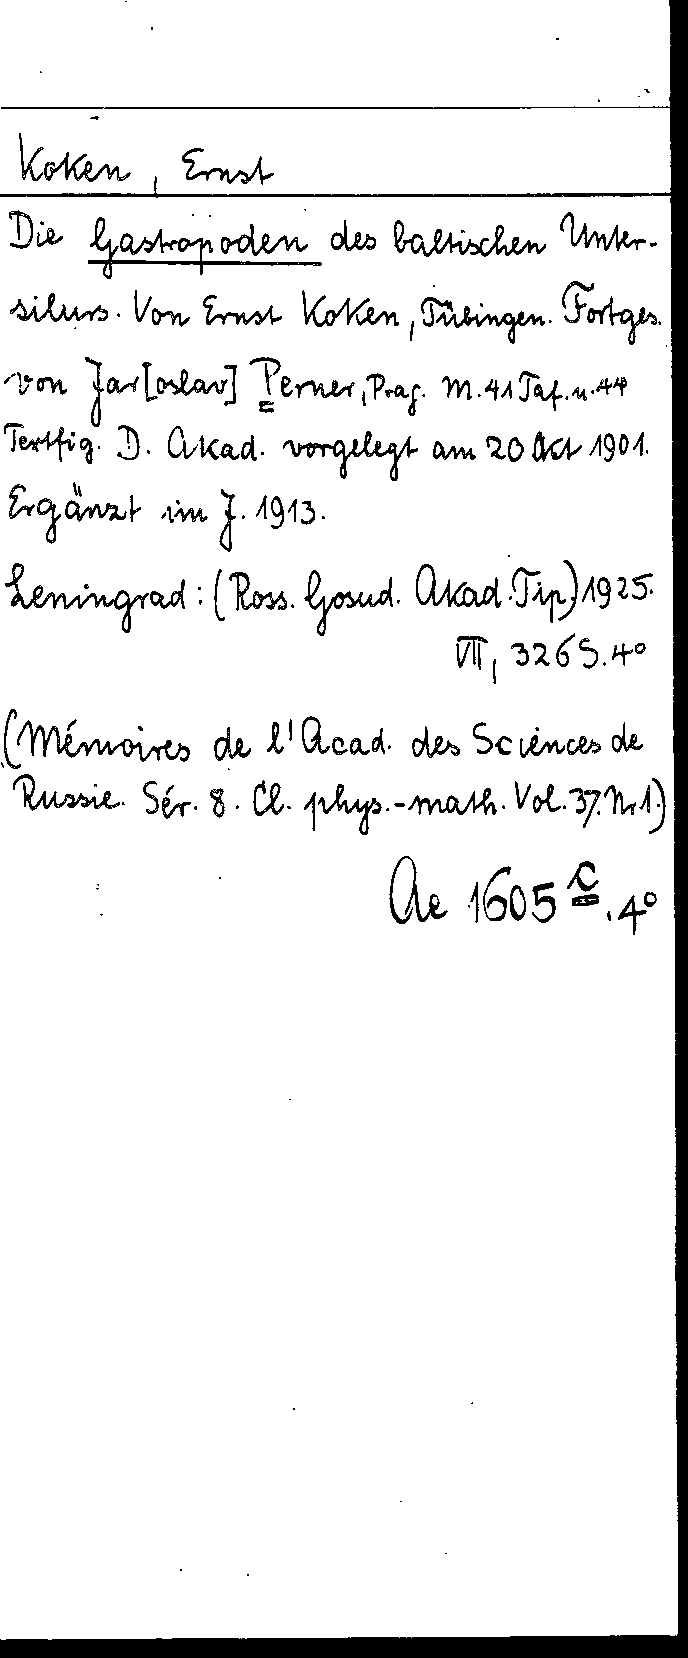 Koken, Ernst
Die Gastropoden des baltischen Unter-
silurs. Von Ernst Koken, Tübingen. Fortges.
von Jar[oslav] Perner, Prag. M. 41 Taf. u. 44
Textfig. D. Akad. vorgelegt am 20 Okt 1901.
Ergänzt im J. 1913.
Leningrad: (Ross. Gosud. Akad. Tip.) 1925.
VII, 326 S. 4°
(Mémoires de l'Acad. des Sciences de
Russie. Sér. 8. Cl. phys.-math. Vol. 37. Nr 1.)
Ae 1605 c. 4°